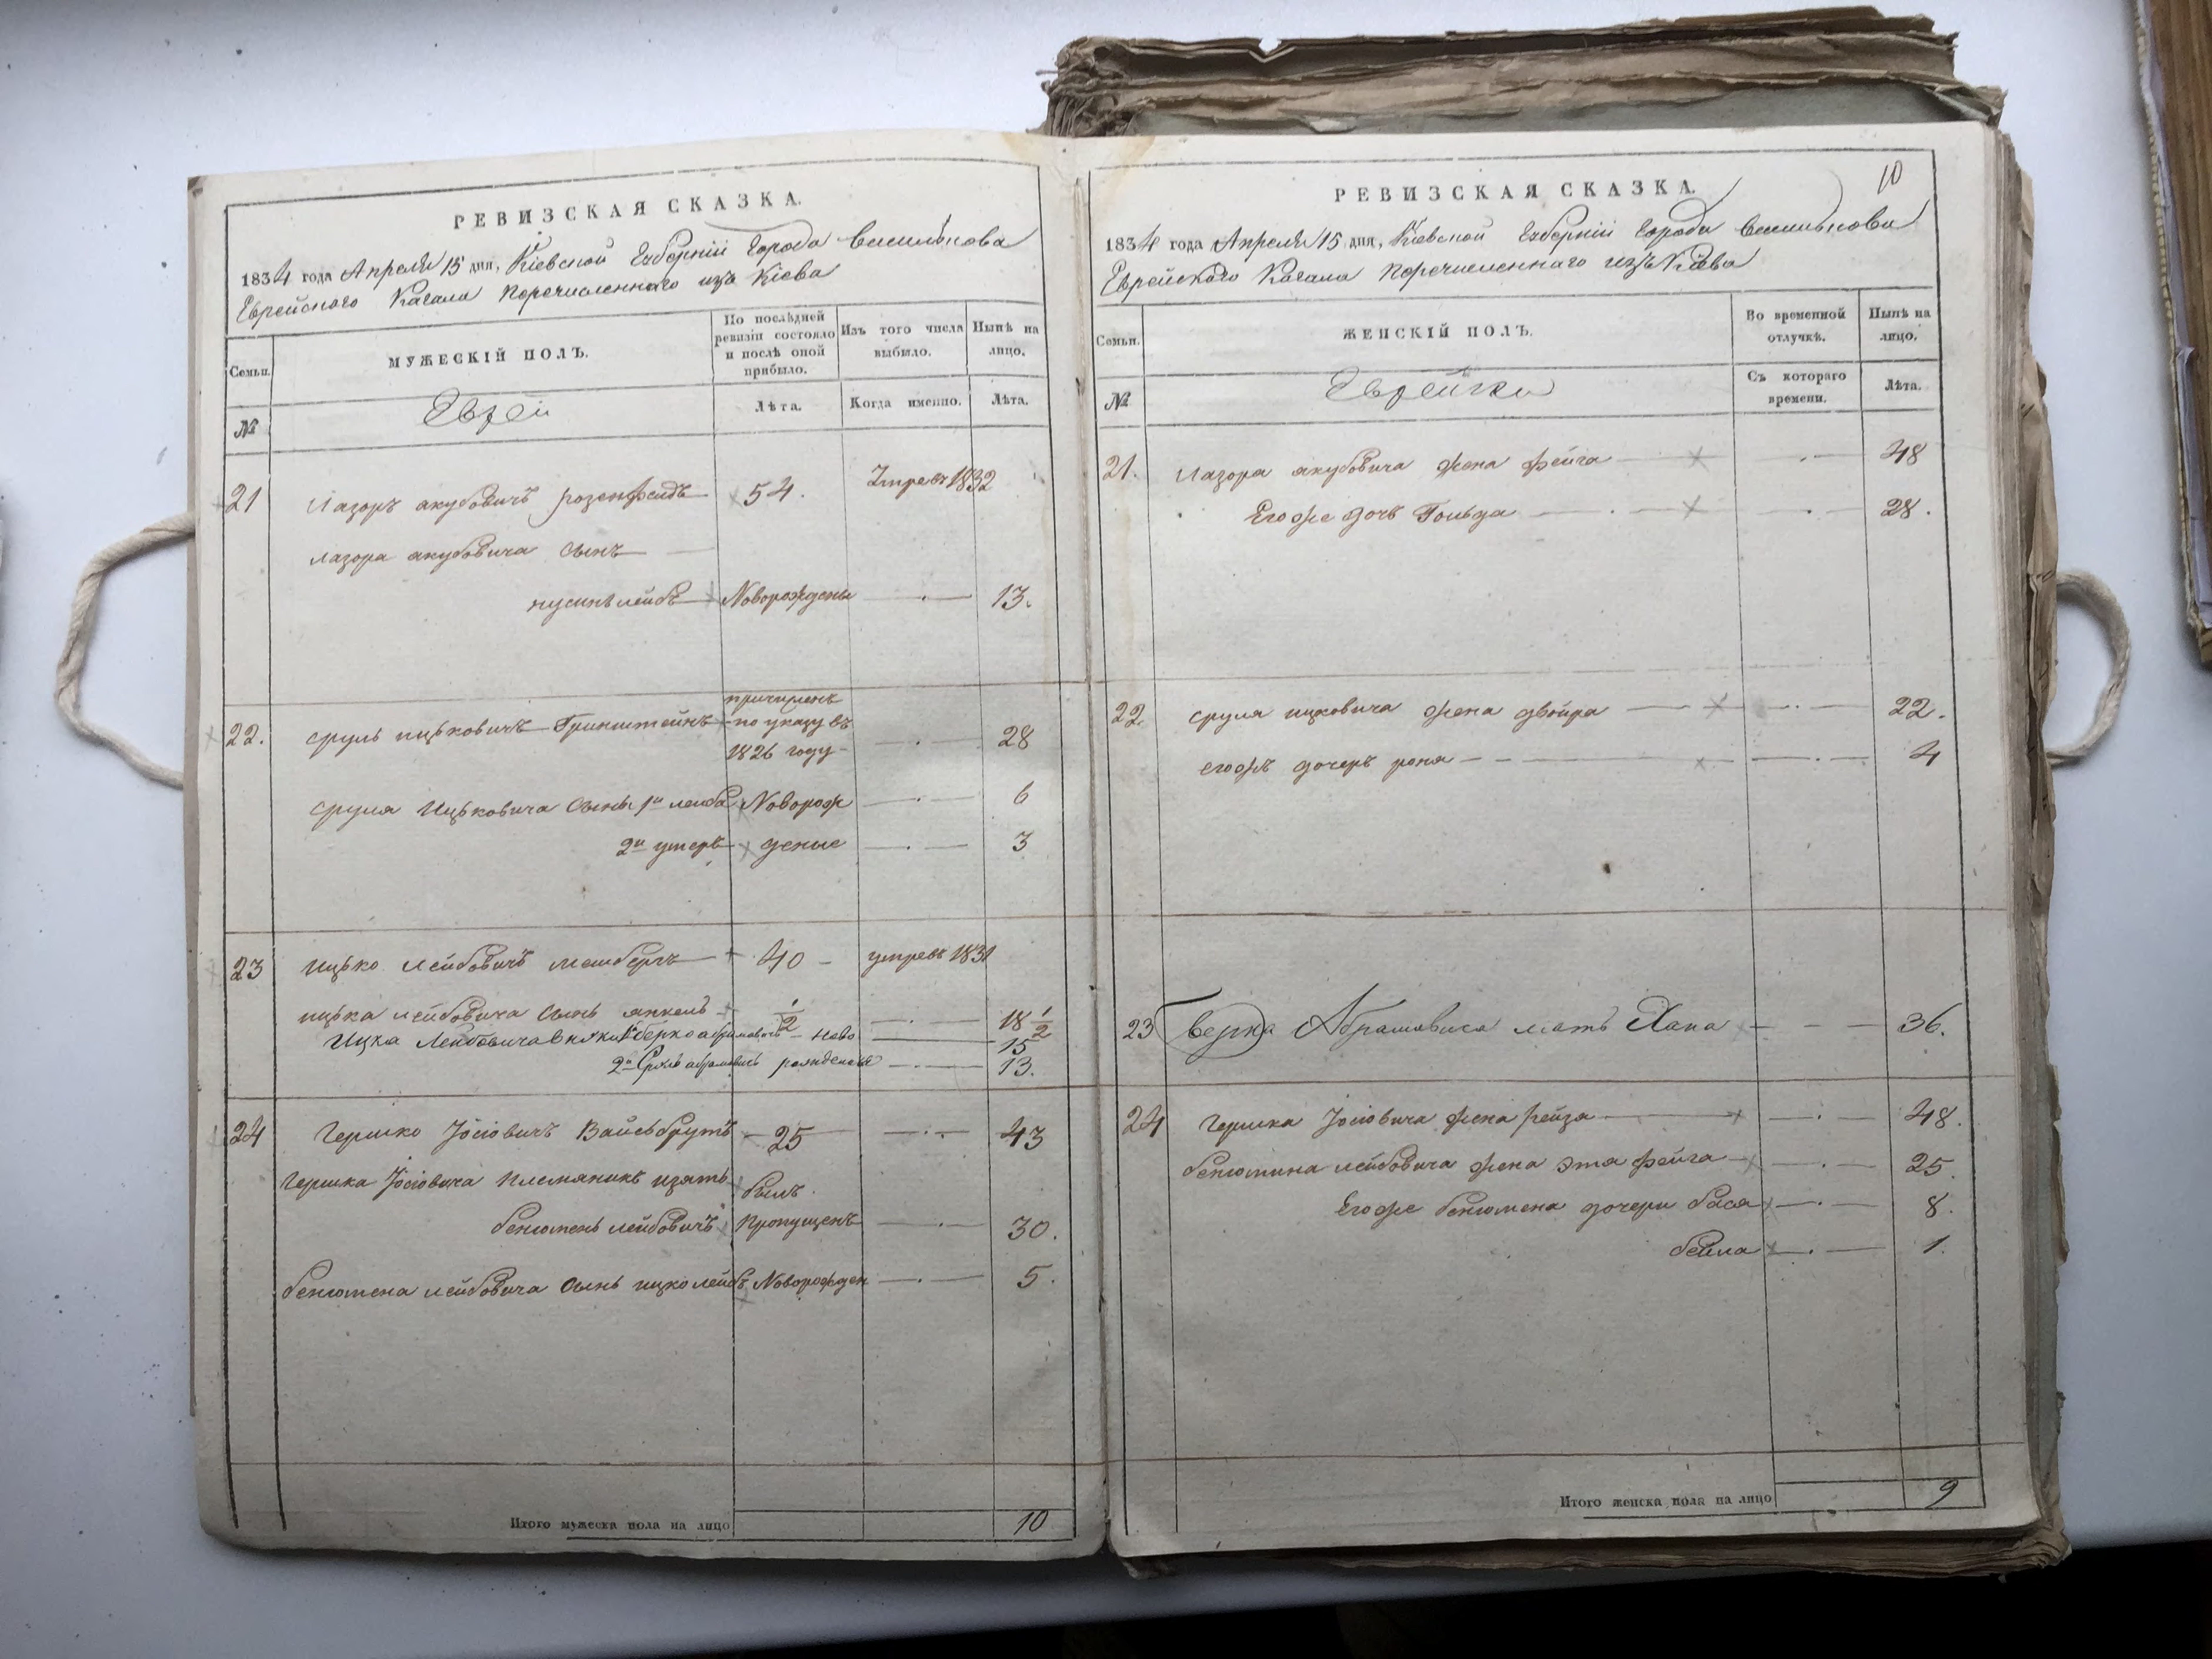 РЕВИЗСКАЯ СКАЗКА.
1834 года Апреля 15 дня, Кіевской Губерніи Города Василькова
Еврейского Кагала перечисленнаго изъ Кіева
Семьи.
МУЖЕСКІЙ ПОЛЪ.
По послѣдней ревизіи состояло и послѣ оной прибыло.
Изъ того числа выбыло.
Нынѣ на лицо.
№
Еврей
Лѣта.
Когда именно.
Лѣта.
21 Лазоръ акубовичъ розенфелдъ 54. Умре въ 1832
лазора акубовича сынъ
нусинъ лейбъ Новорожденый 13.
причисленъ
22. сруль ицьковичъ Гринштейнъ по указу въ 28
1826 году
сруля Ицьковича сыны 1й лейба Новорож 6
2й дение 3
23 ицько лейбовичъ 40 умре въ 1831
ицька лейбовича сынъ янкель 1/2 18 1/2
Ицка Лейбовича внуки 1й берко абрамовичъ Ново 15
2й Сруль абрамовичъ рожденые 13.
24 Гершко Јосіовичъ Вайсбрутъ 25 43
Гершка Јосіовича племяникъ изять былъ
бенюменъ лейбовичъ Пропущенъ 30.
бенюмена лейбовича сынъ ицко лейбъ Новорожден 5.
Итого мужеска пола на лицо 10
10
РЕВИЗСКАЯ СКАЗКА.
1834 года Апреля 15 дня, Кіевской Губерніи Города Василькова
Еврейского Кагала перечисленнаго изъ Кіева
Семьи.
ЖЕНСКІЙ ПОЛЪ.
Во временной отлучкѣ.
Нынѣ на лицо.
№
Еврейки
Съ котораго времени.
Лѣта.
21. Лазора акубовича жена фейга 48
Его же дочь Гольда 28.
22. сруля ицковича жена двойра 22.
его жъ дочерь роня 4
23 берка Абрамовича мать Хана 36.
24 Гершка Јосіовича жена рейза 48.
бенюмина лейбовича жена эта фейга 25.
Его же бенюмена дочери бася 8.
бейла 1.
Итого женска пола на лицо 9